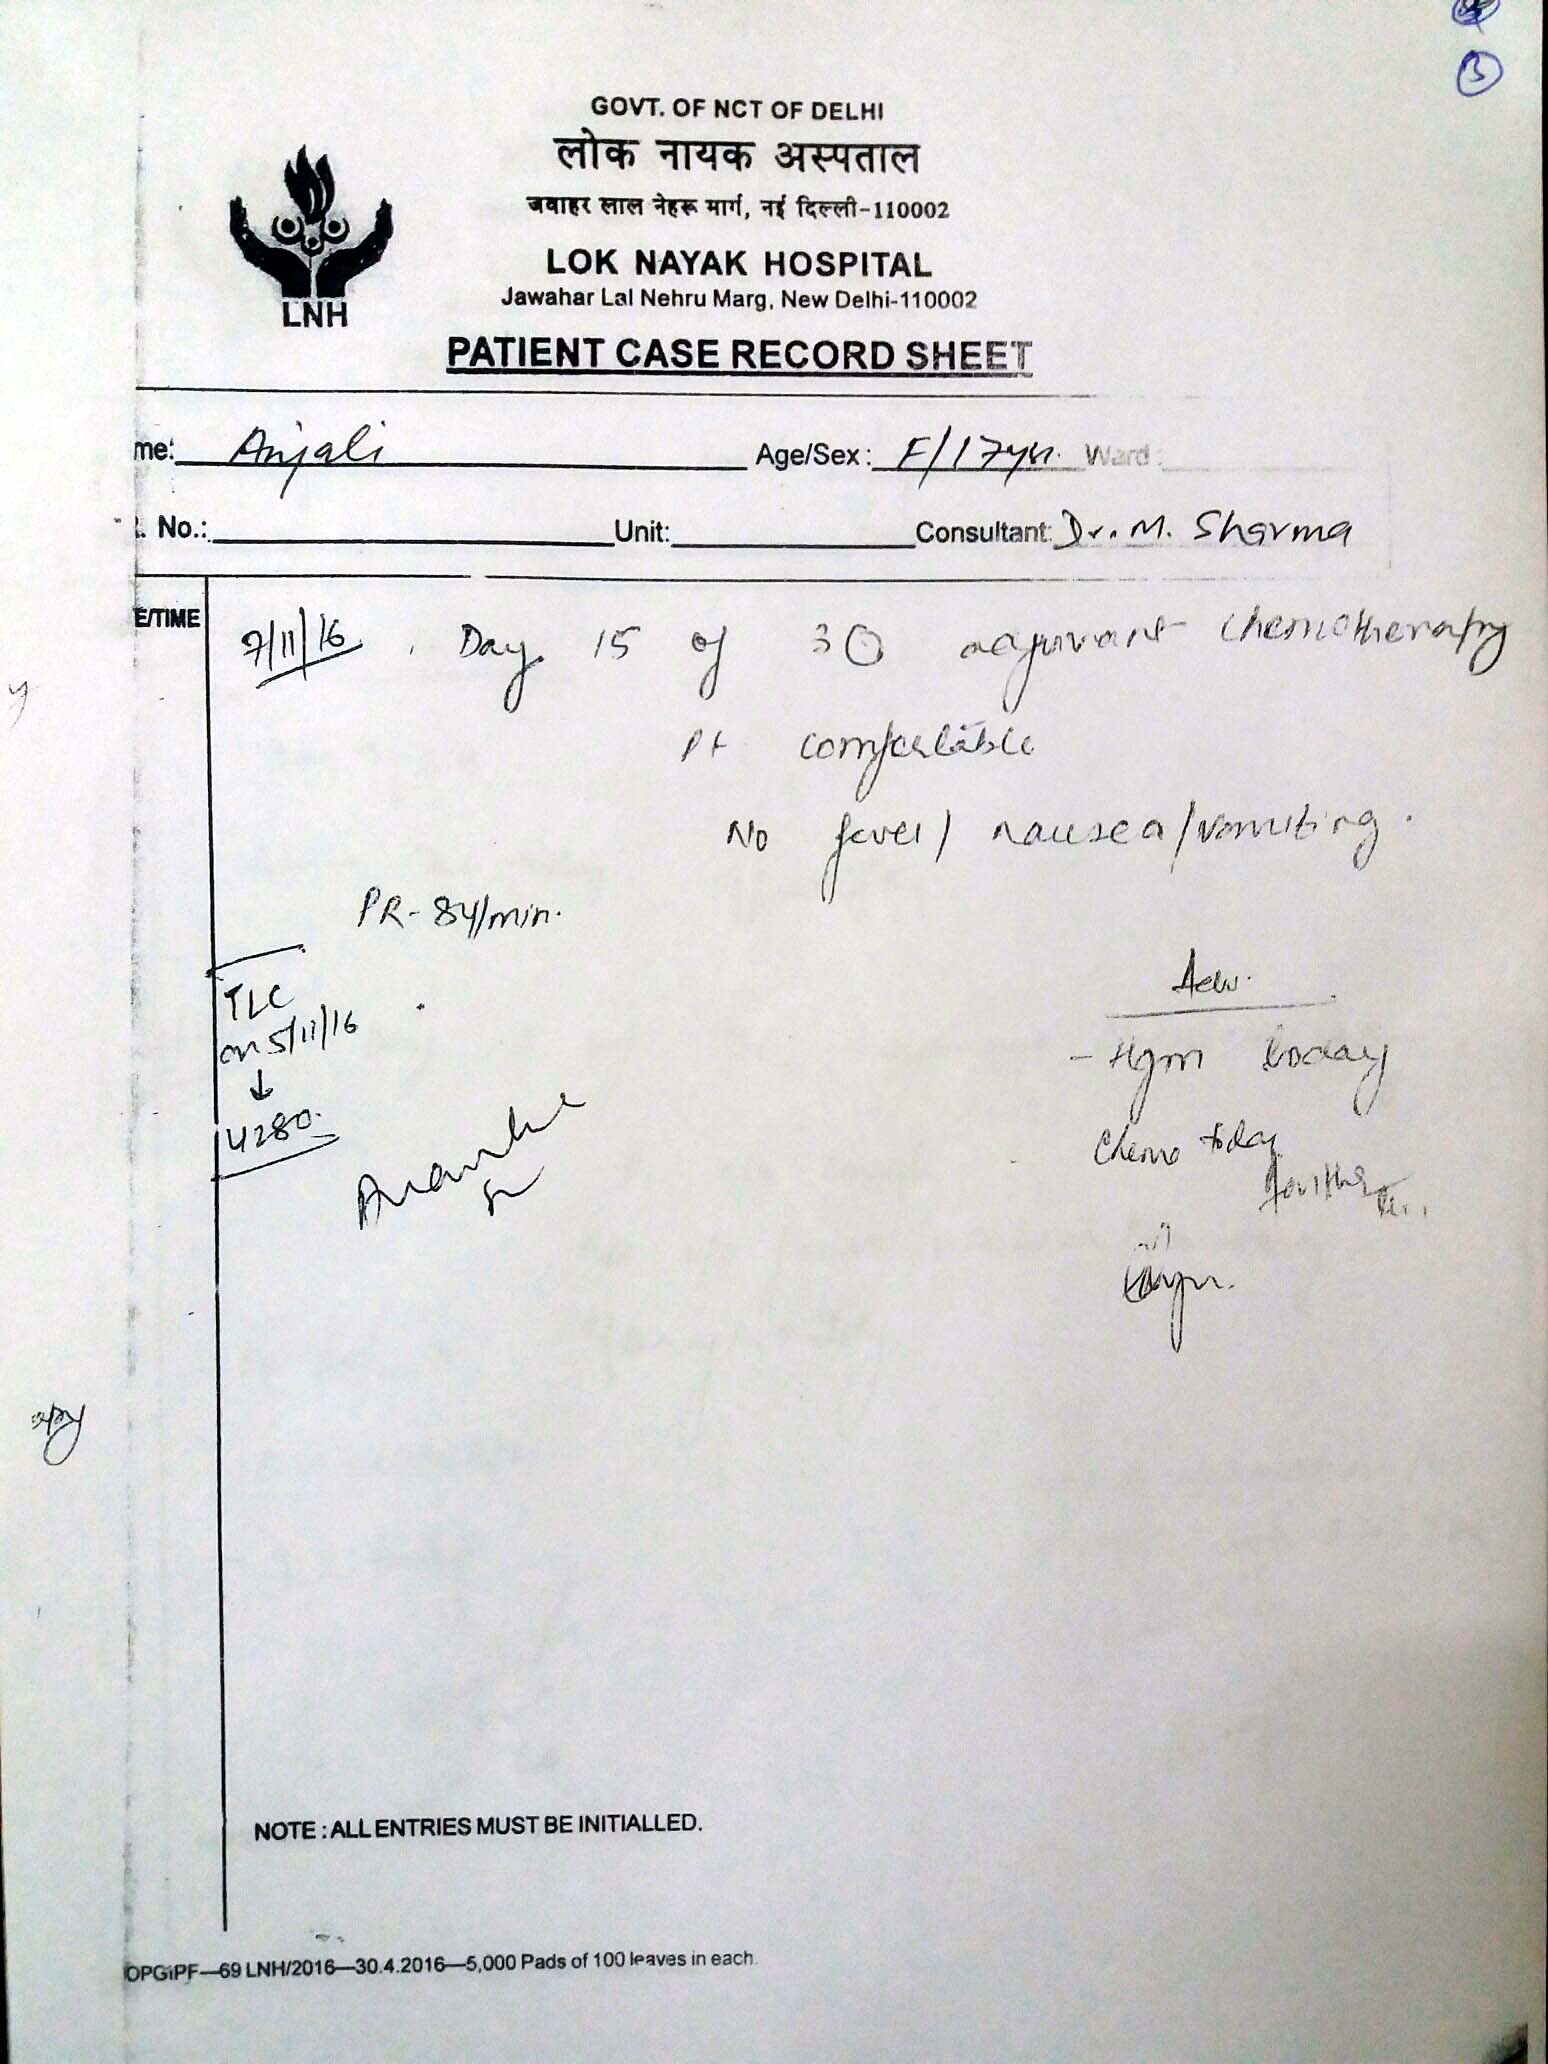 GOVT. OF NCT OF DELHI
लोक नायक अस्पताल
जवाहर लाल नेहरू मार्ग, नई दिल्ली-110002
LOK NAYAK HOSPITAL
Jawahar Lal Nehru Marg, New Delhi-110002
LNH
PATIENT CASE RECORD SHEET
me: Anjali Age/Sex: F/17yr. Ward:
No.: Unit: Consultant: Dr. M. Sharma
E/TIME
7/11/16 Day 15 of 30 adjuvant chemotherapy
Pt comfortable
No fever/ nausea/vomiting.
PR- 84/min.
TLC
on 5/11/16
↓
4280
Adv.
- Hgm today
Chemo today
apy
NOTE : ALL ENTRIES MUST BE INITIALLED.
OPGIPF—69 LNH/2016—30.4.2016—5,000 Pads of 100 leaves in each.